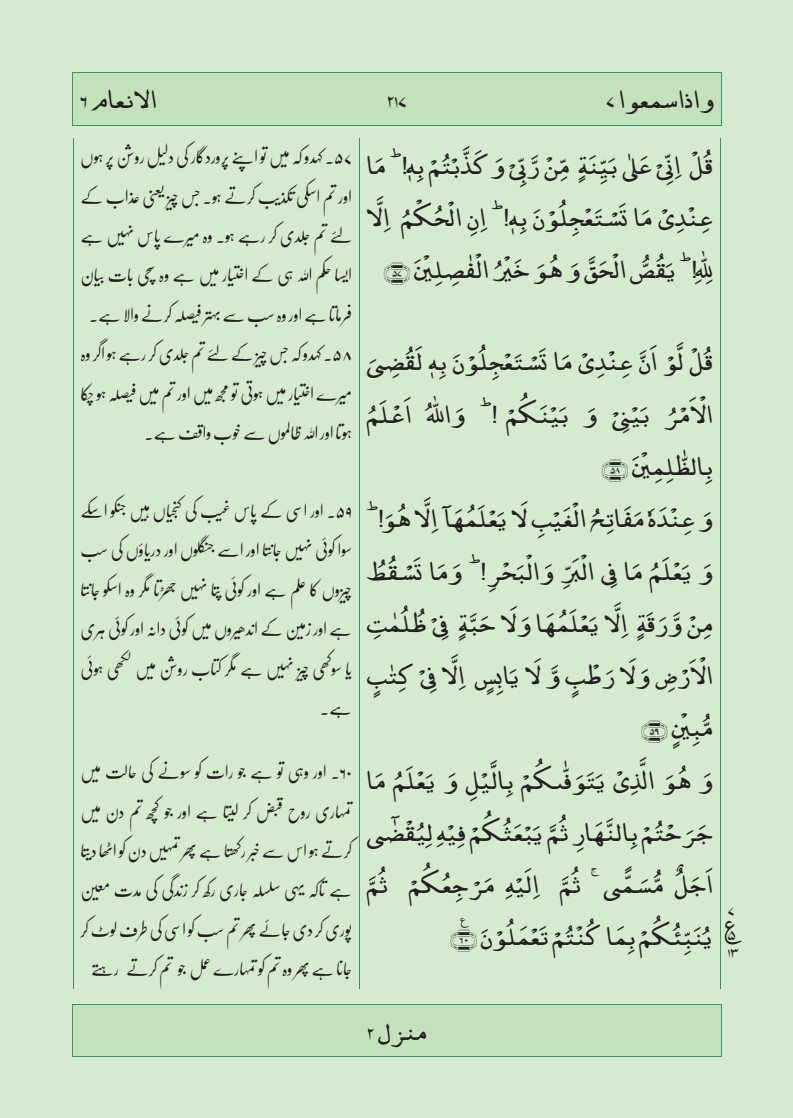 واذاسمعوا ۷
۲۱۷
الانعام ۶
قُلۡ اِنِّیۡ عَلٰی بَیِّنَۃٍ مِّنۡ رَّبِّیۡ وَ کَذَّبۡتُمۡ بِہٖ! ؕ مَا
عِنۡدِیۡ مَا تَسۡتَعۡجِلُوۡنَ بِہٖ! ؕ اِنِ الۡحُکۡمُ اِلَّا
لِلّٰہِ! ؕ یَقُصُّ الۡحَقَّ وَ ہُوَ خَیۡرُ الۡفٰصِلِیۡنَ ﴿۵۷﴾
قُلۡ لَّوۡ اَنَّ عِنۡدِیۡ مَا تَسۡتَعۡجِلُوۡنَ بِہٖ لَقُضِیَ
الۡاَمۡرُ بَیۡنِیۡ وَ بَیۡنَکُمۡ ! ؕ وَاللّٰہُ اَعۡلَمُ
بِالظّٰلِمِیۡنَ ﴿۵۸﴾
وَ عِنۡدَہٗ مَفَاتِحُ الۡغَیۡبِ لَا یَعۡلَمُہَاۤ اِلَّا ہُوَ! ؕ
وَ یَعۡلَمُ مَا فِی الۡبَرِّ وَالۡبَحۡرِ! ؕ وَمَا تَسۡقُطُ
مِنۡ وَّرَقَۃٍ اِلَّا یَعۡلَمُہَا وَلَا حَبَّۃٍ فِیۡ ظُلُمٰتِ
الۡاَرۡضِ وَلَا رَطۡبٍ وَّ لَا یَابِسٍ اِلَّا فِیۡ کِتٰبٍ
مُّبِیۡنٍ ﴿۵۹﴾
وَ ہُوَ الَّذِیۡ یَتَوَفّٰىکُمۡ بِالَّیۡلِ وَ یَعۡلَمُ مَا
جَرَحۡتُمۡ بِالنَّہَارِ ثُمَّ یَبۡعَثُکُمۡ فِیۡہِ لِیُقۡضٰۤی
اَجَلٌ مُّسَمًّی ۚ ثُمَّ اِلَیۡہِ مَرۡجِعُکُمۡ ثُمَّ
یُنَبِّئُکُمۡ بِمَا کُنۡتُمۡ تَعۡمَلُوۡنَ ﴿۶۰﴾
۷
ع
۵
۱۳
۵۷۔ کہدو کہ میں تو اپنے پروردگار کی دلیل روشن پر ہوں
اور تم اسکی تکذیب کرتے ہو۔ جس چیز یعنی عذاب کے
لئے تم جلدی کر رہے ہو۔ وہ میرے پاس نہیں ہے
ایسا حکم اللہ ہی کے اختیار میں ہے وہ سچی بات بیان
فرماتا ہے اور وہ سب سے بہتر فیصلہ کرنے والا ہے۔
۵۸۔ کہدو کہ جس چیز کے لئے تم جلدی کر رہے ہو اگر وہ
میرے اختیار میں ہوتی تو مجھ میں اور تم میں فیصلہ ہو چکا
ہوتا اور اللہ ظالموں سے خوب واقف ہے۔
۵۹۔ اور اسی کے پاس غیب کی کنجیاں ہیں جنکو اسکے
سوا کوئی نہیں جانتا اور اسے جنگلوں اور دریاؤں کی سب
چیزوں کا علم ہے اور کوئی پتا نہیں جھڑتا مگر وہ اسکو جانتا
ہے اور زمین کے اندھیروں میں کوئی دانہ اور کوئی ہری
یا سوکھی چیز نہیں ہے مگر کتاب روشن میں لکھی ہوئی
ہے۔
۶۰۔ اور وہی تو ہے جو رات کو سونے کی حالت میں
تمہاری روح قبض کر لیتا ہے اور جو کچھ تم دن میں
کرتے ہو اس سے خبر رکھتا ہے پھر تمہیں دن کو اٹھا دیتا
ہے تاکہ یہی سلسلہ جاری رکھ کر زندگی کی مدت معین
پوری کر دی جائے پھر تم سب کو اسی کی طرف لوٹ کر
جانا ہے پھر وہ تم کو تمہارے عمل جو تم کرتے رہتے
منزل ۲